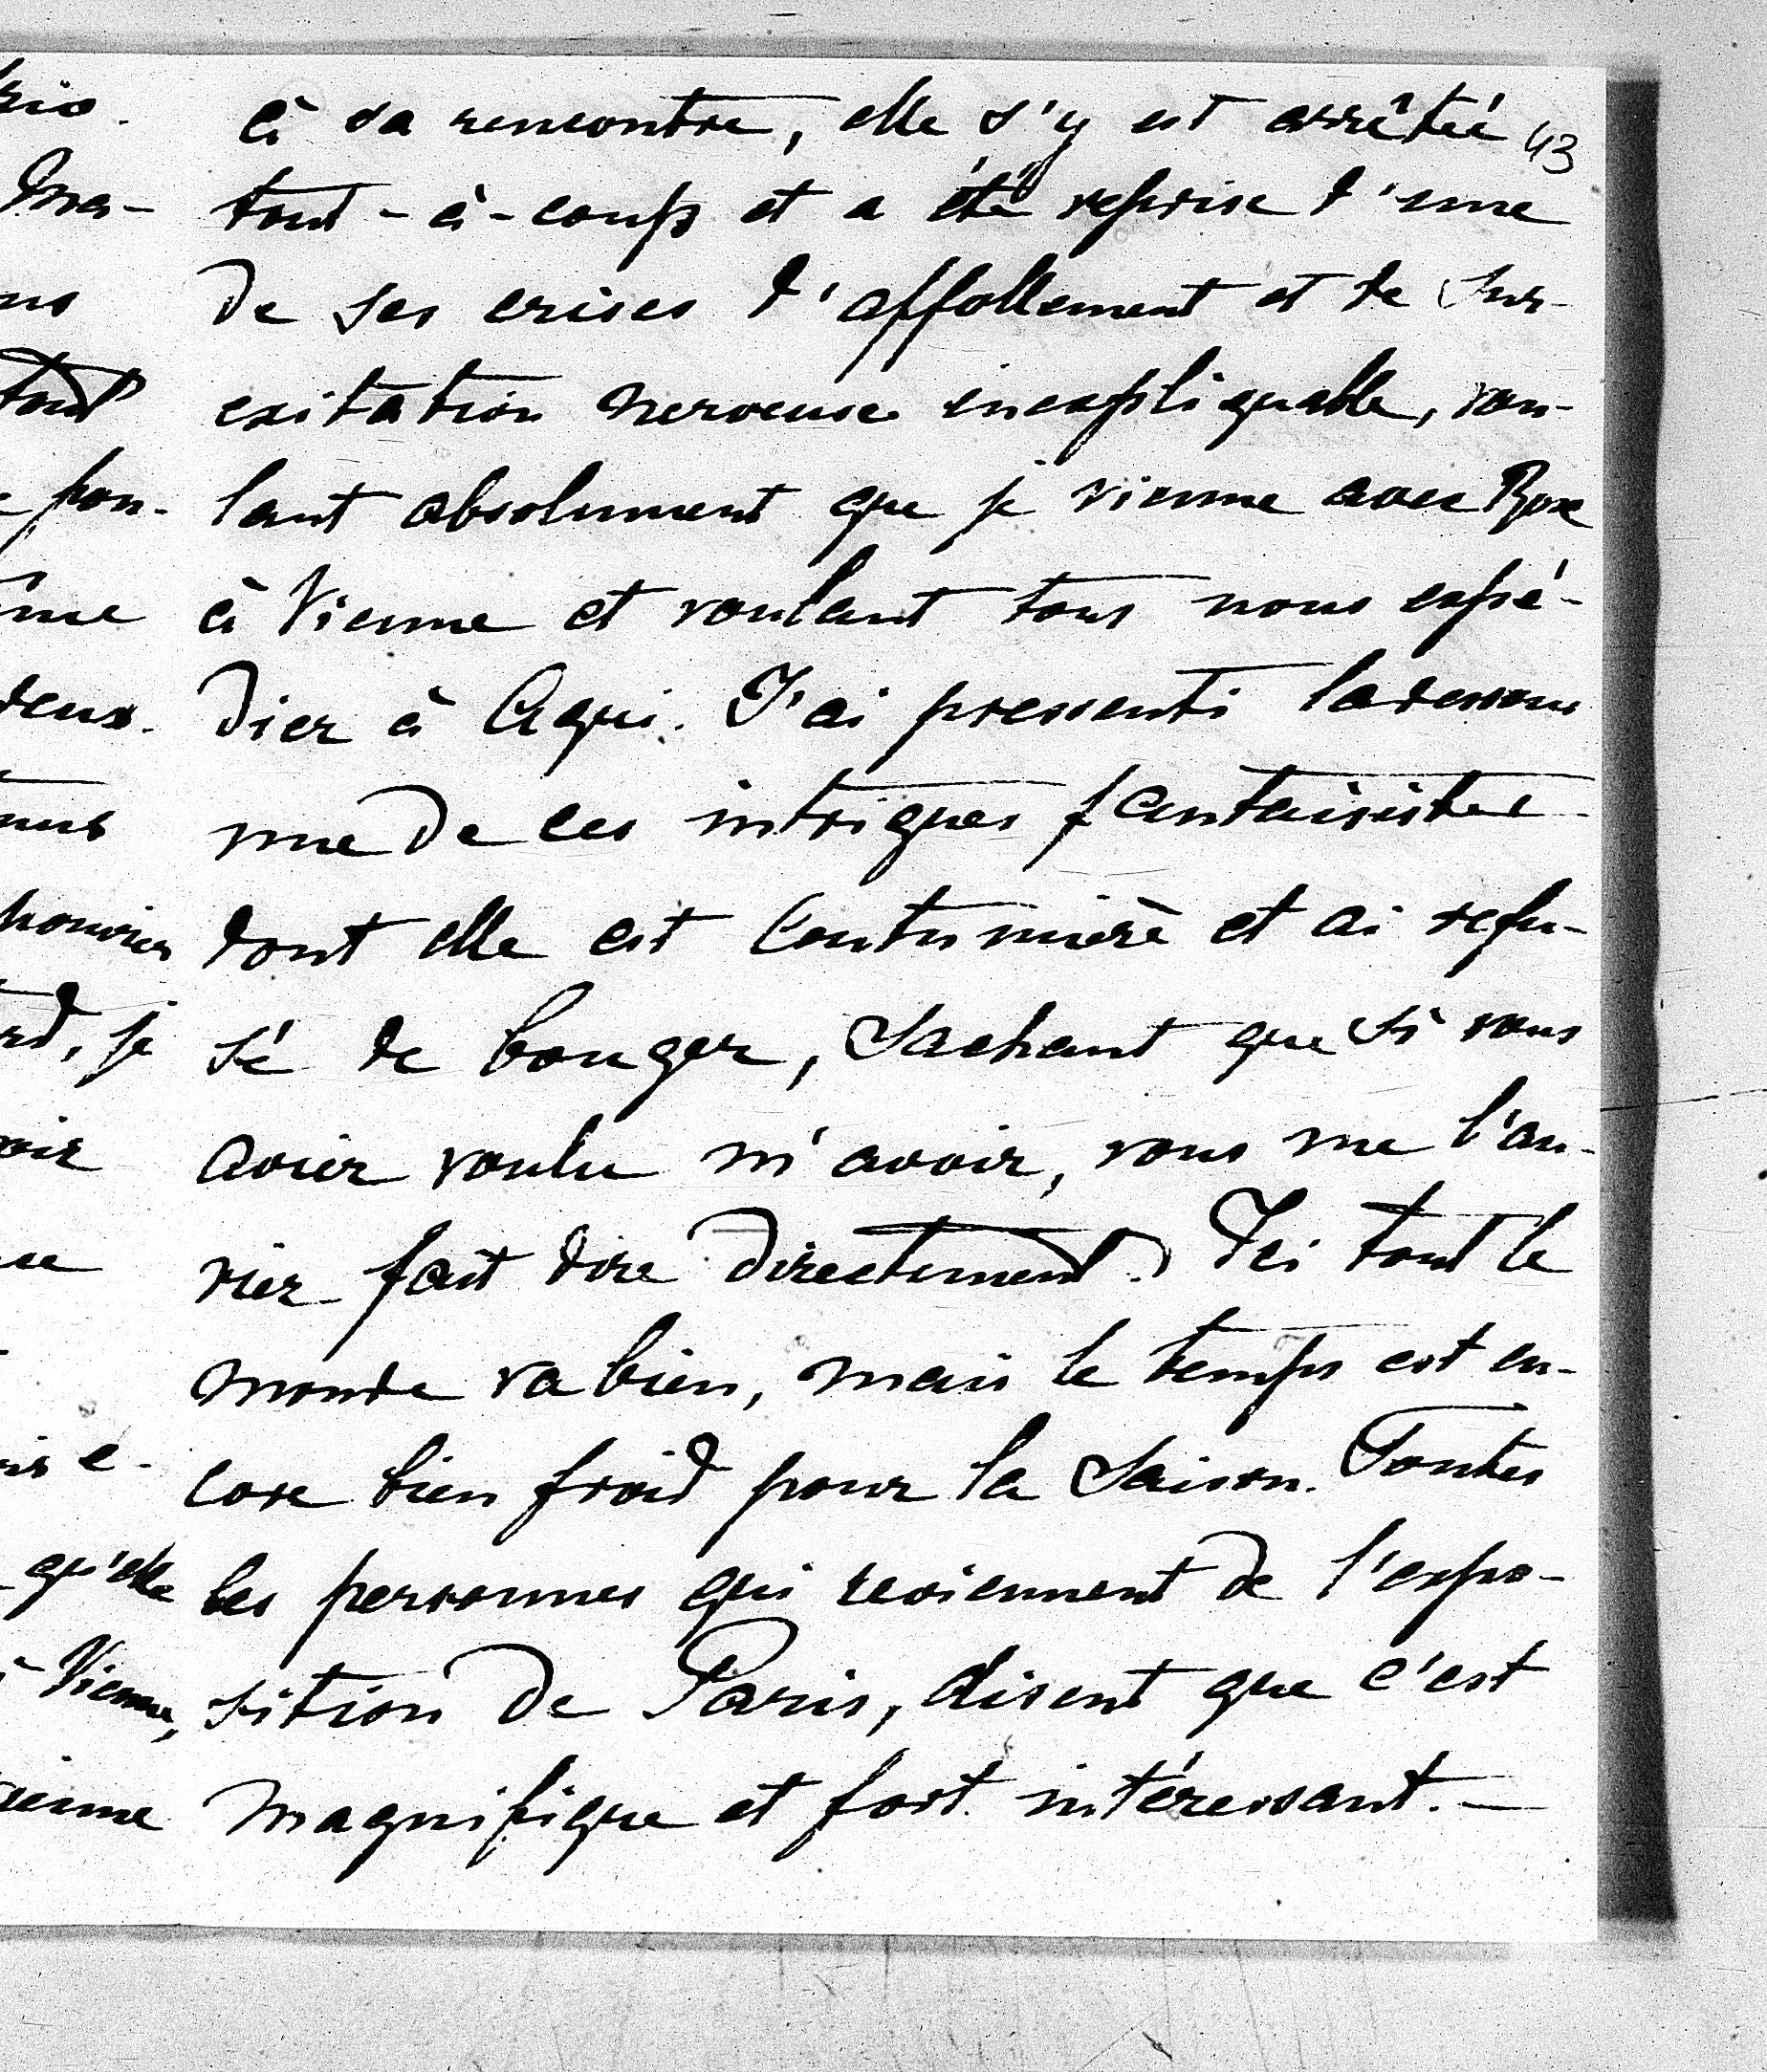 à sa rencontre, elle s'y est arrêtée 43
tout-à-coup et a été reprise d'une
de ses crises d'affollement et de sur-
exitation nerveuse inexpliquable, vou-
lant absolument que je vienne avec Rose
à Vienne et voulant tous nous expé-
dier à Aqui. J'ai pressenti ladessous
une de ces intrigues fantaisistes
dont elle est coutumière et ai refu-
sé de bouger, sachant que si vous
aviez voulu m'avoir, vous me l'au-
riez fait dire directement. Ici tout le
monde va bien, mais le temps est en-
core bien froid pour la saison. Toutes
les personnes qui reviennent de l'expo-
sition de Paris, disent que c'est
magnifique et fort intéressant.—